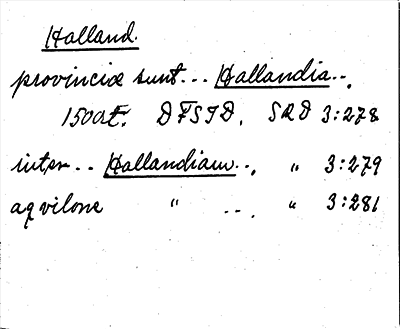 Halland.
provinciæ sunt... Hallandia...
1500t. DFSTD. SRD 3:278
inter.. Hallandiam... " 3:279
aqvilone " ... " 3:281